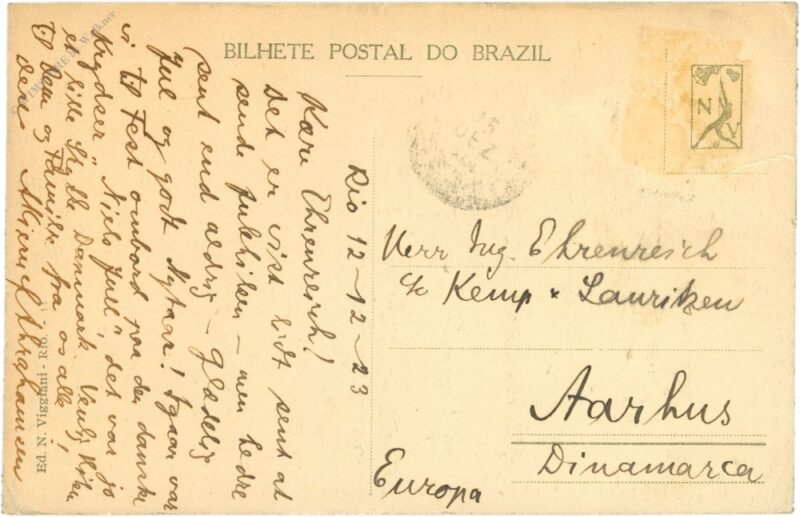 BILHETE POSTAL DO BRAZIL
N
V
15
DEZ
Rio 12-12-23
Kære Ehrenreich!
Det er vist lidt sent at
sende Julehilsen – men bedre
sent end aldrig – Glædelig
Jul og godt Nytaar! Igaar var
vi til Fest ombord paa den danske
Krydser "Niels Juel", det var jo
et lille Stykke Danmark. Venlig Hilsen
til Dem og Familie fra os alle,
Deres
Abrahamsen
Herr Ing. Ehrenreich
c/o Kemp & Lauritzen
Aarhus
Dinamarca
Europa
Ed. N. Viggiani - Rio.